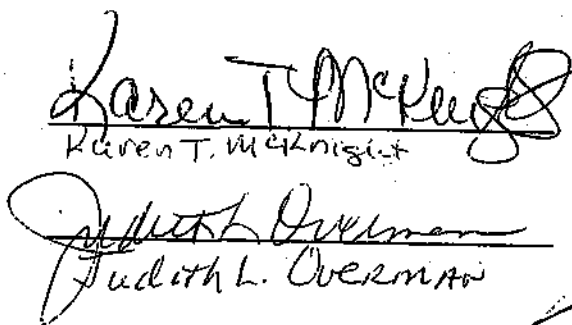 Karen T. McKnight
Karen T. McKnight
Judith L Overman
Judith L. OVERMAN